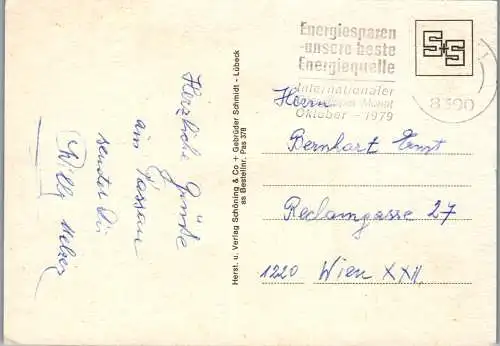 Herzliche Grüße
aus Passau
sendet Dir
Willy
Herst. u. Verlag Schöning & Co + Gebrüder Schmidt - Lübeck
as Bestellnr. Pas 378
Energiesparen
-unsere beste
Energiequelle
Internationaler
Monat
Oktober - 1979
8390
S+S
Herrn
Bernhart Ernst
Reclamgasse 27
1220 Wien XXII.